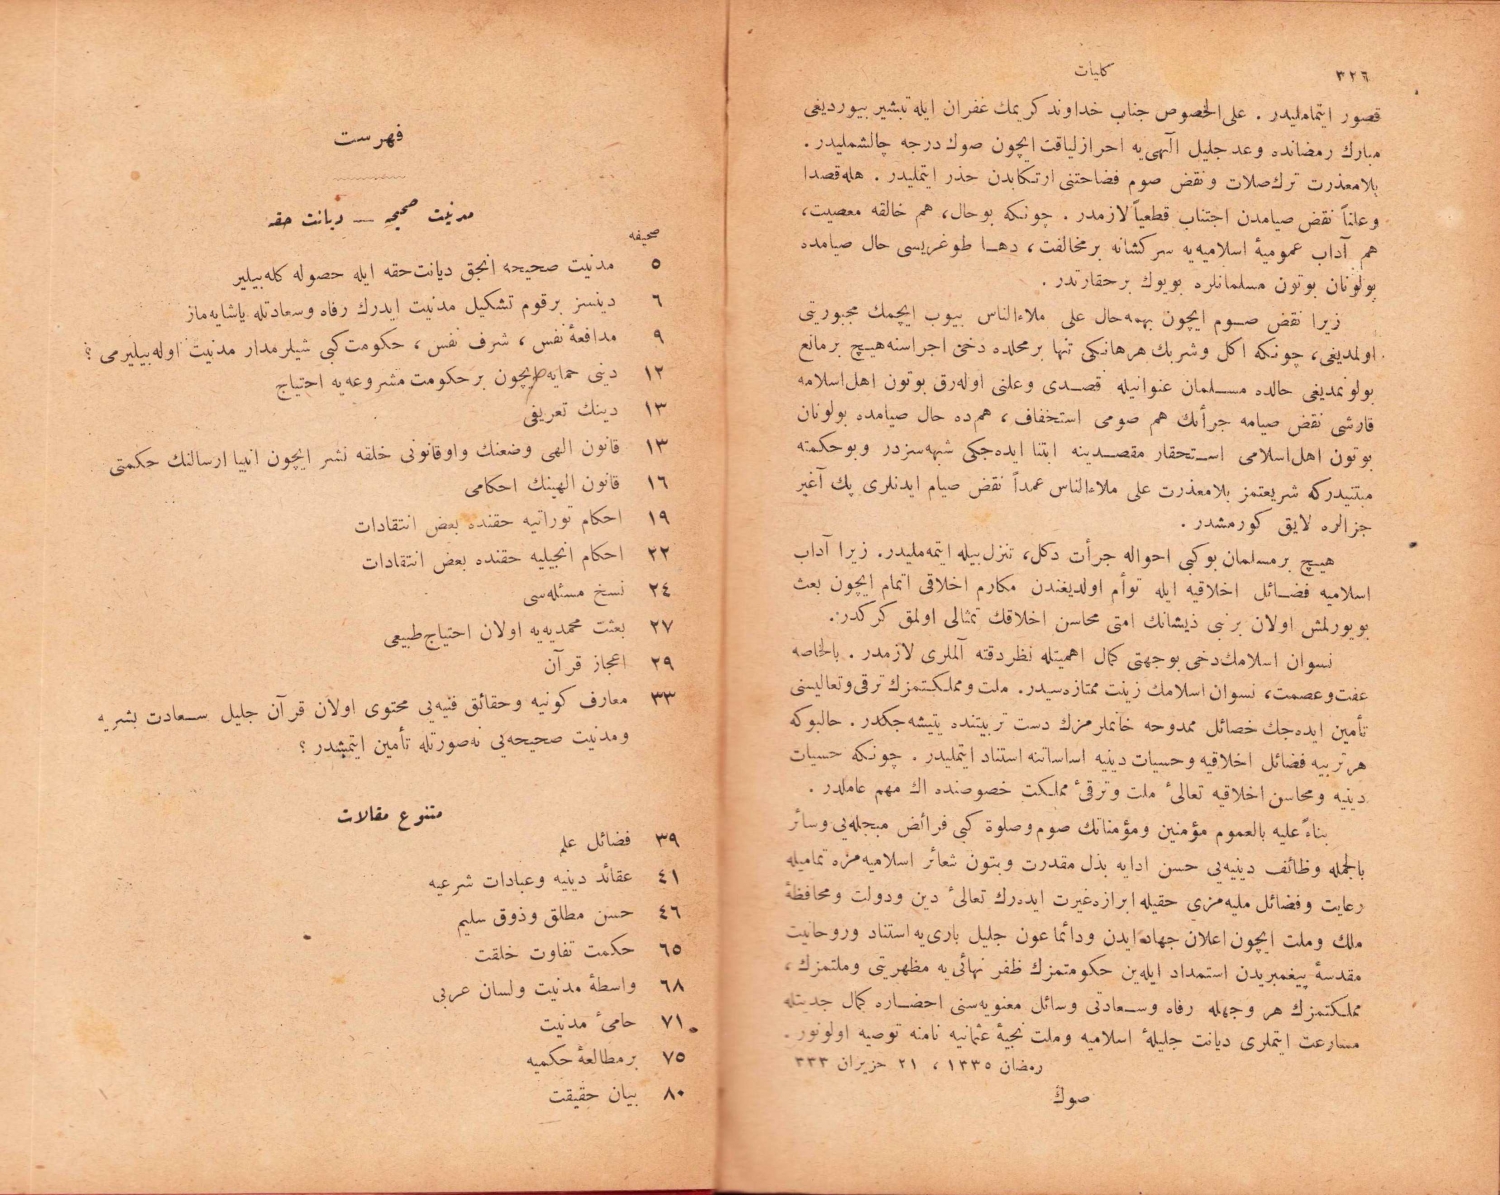 ٣٢٦
كليات
قصور ايتمامليدر . على‌الخصوص جناب خداوند كريمك غفران ايله تبشير بيورديغى
مبارك رمضانده وعد جليل الٓهى‌يه احراز لياقت ايچون صوك درجه چالشمليدر .
بلامعذرت ترك‌صلات ونقض صوم فضاحتنى ارتكابدن حذر ايتمليدر . هله‌قصدا
وعلناً نقض صيامدن اجتناب قطعياً لازمدر . چونكه بوحال، هم خالقه معصيت،
هم آداب عموميۀ اسلاميه‌يه سركشانه برمخالفت، دهـا طوغريسى حال صيامده
بولونان بوتون مسلمانلره بويوك برحقارتدر .
زيرا نقض صـوم ايچون بهمه‌حال على ملاءالناس يبوب ايچمك مجبوريتى
اولمديغى، چونكه اكل وشربك هرهانكى تنها برمحلده دخى اجراسنه‌هيچ برمانع
بولونمديغى حالده مسـلمان عنوانيله قصـدى وعلنى اوله‌رق بوتون اهل‌اسلامه
قارشى نقض صيامه جرأتك هم صومى استخفاف، هم‌ده حال صيامده بولونان
بوتون اهل‌اسلامى استحقار مقصـدينه ابتنا ايده‌جكى شبهه‌سزدر وبوحكمته
مبتنيدركه شريعتمز بلامعذرت على ملاءالناس عمداً نقض صيام ايدنلرى پك آغير
جزالره لايق كورمشدر .
هيچ برمسلمان بوكبى احواله جرأت دكل، تنزل بيله ايتمه‌مليدر. زيرا آداب
اسلاميه فضـائل اخلاقيه ايله توأم اولديغندن مكارم اخلاقى اتمام ايچون بعث
بويورلمش اولان برنبى ذيشانك امتى محاسن اخلاقك تمثالى اولمق كركدر.
نسوان اسلامك‌دخى بوجهتى كمال اهميتله نظردقته آلملرى لازمدر . بالخاصه
عفت‌وعصمت، نسوان اسلامك زينت ممتازه‌سيدر. ملت ومملكتمزك ترقى‌وتعاليسنى
تأمين ايده‌جك خصائل ممدوحه خانملرمزك دست تربيتنده يتيشه‌جكدر . حالبوكه
هرتربيه فضائل اخلاقيه وحسيات دينيه اساساتنه استناد ايتمليدر . چونكه حسيات
دينيه ومحاسن اخلاقيه تعالىٴ ملت وترقىٴ مملكت خصوصنده اك مهم عاملدر .
بناءً عليه بالعموم مؤمنين ومؤمناتك صوم وصلوة كبى فرائض مبجله‌يى وسائر
بالجمله وظائف دينيه‌يى حسن ادايه بذل مقدرت وبتون شعائر اسلاميه‌مزه تماميله
رعايت وفضائل مليه‌مزى حقيله ابرازه‌غيرت ايده‌رك تعالىٴ دين ودولت ومحافظۀ
ملك وملت ايچون اعلان جهادايدن ودائما عون جليل بارى‌يه استناد وروحانيت
مقدسۀ پيغمبريدن استمداد ايله‌ين حكومتمزك ظفر نهائى‌يه مظهريتى وملتمزك،
مملكتمزك هر وجهله رفاه وسـعادتى وسائل معنويه‌سنى احضـاره كمال جديتله
مسارعت ايتملرى ديانت جليلۀ اسلاميه وملت نجيبۀ عثمانيه نامنه توصيه اولونور .
رمضان ١٣٣٥ ، ٢١ حزيران ٣٣٣
صوك
فهرست
مدنيت صحيحه — ديانت حقه
صحيفه
٥ مدنيت صحيحه انجق ديانت‌حقه ايله حصوله كله‌بيلير
٦ دينسز برقوم تشكيل مدنيت ايدرك رفاه وسعادتله ياشايه‌ماز
٩ مدافعۀ نفس ، شرف نفس ، حكومت‌كبى شيلرمدار مدنيت اوله‌بيليرمى ؟
١٢ دينى حمايه ايچون برحكومت مشروعه‌يه احتياج
١٣ دينك تعريفى
١٣ قانون الهى وضعنك واوقانونى خلقه نشر ايچون انبيا ارسالنك حكمتى
١٦ قانون الهينك احكامى
١٩ احكام توراتيه حقنده بعض انتقادات
٢٢ احكام انجيليه حقنده بعض انتقادات
٢٤ نسخ مسئله‌سى
٢٧ بعثت محمديه‌يه اولان احتياج‌طبيعى
٢٩ اعجاز قرآن
٣٣ معارف كونيه وحقائق فنيه‌يى محتوى اولان قرآن جليل سـعادت بشريه
ومدنيت صحيحه‌يى نه‌صورتله تأمين ايتمشدر ؟
متنوع مقالات
٣٩ فضائل علم
٤١ عقائد دينيه وعبادات شرعيه
٤٦ حسن مطلق وذوق سليم
٦٥ حكمت تفاوت خلقت
٦٨ واسطۀ مدنيت ولسان عربى
٧١ حامىٴ مدنيت
٧٥ برمطالعۀ حكميه
٨٠ بيان حقيقت